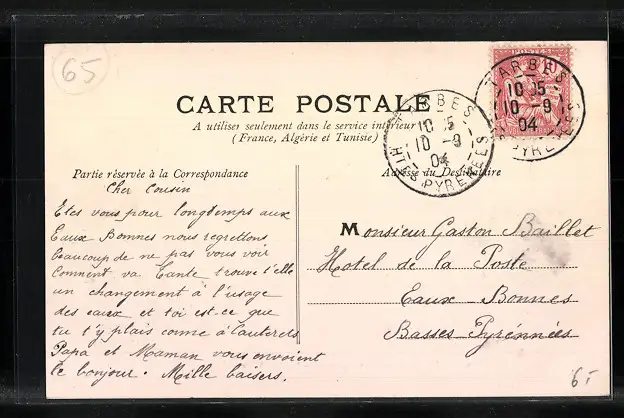 65
CARTE POSTALE
A utiliser seulement dans le service intérieur
(France, Algérie et Tunisie)
TARBES
10 15
10 -9
04
HTES PYRENEES
TARBES
10 15
10 -9
04
PYRENEES
Partie réservée à la Correspondance
Adresse du Destinataire
Cher Cousin
Etes vous pour longtemps aux
Eaux Bonnes nous regrettons
beaucoup de ne pas vous voir
Comment va Tante trouve t'elle
un changement à l'usage
des eaux et toi est-ce que
tu t'y plais comme à Cauterets
Papa et Maman vous envoient
le bonjour. Mille baisers.
Monsieur Gaston Baillet
Hotel de la Poste
Eaux Bonnes
Basses Pyrénnées
6,-